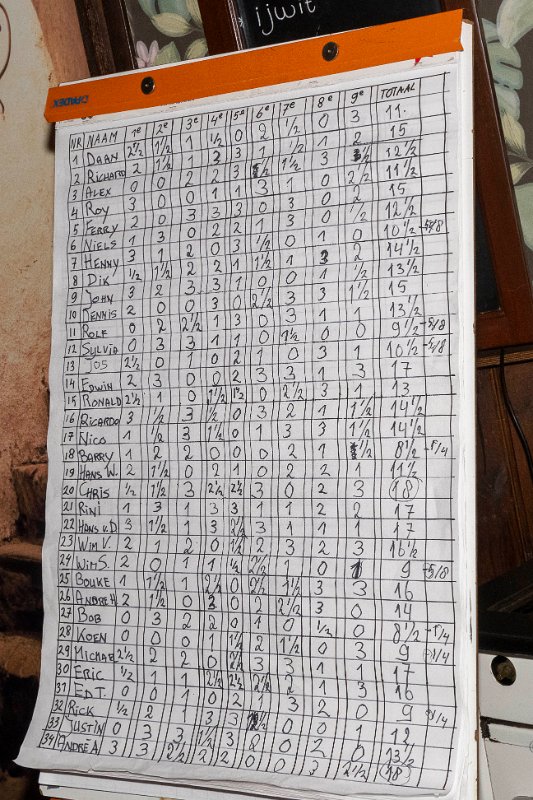 ijwit
NR NAAM 1e 2e 3e 4e 5e 6e 7e 8e 9e TOTAAL
1 DAAN 2½ 1½ 1 ½ 0 2 ½ 0 3 11.
2 RICHARD 2 1½ 1 3 3 1 ½ 1 2 15
3 ALEX 0 0 2 2 3 ½ 1½ 0 3½ 12½
4 ROY 3 0 0 1 1 3 1 0 2½ 11½
5 FERRY 2 0 3 3 3 0 3 0 2 15
6 NIELS 1 3 0 2 2 1 3 0 ½ 12½
7 HENNY 3 1 2 0 3 ½ 0 1 0 10½ -5/8
8 DIK ½ 1½ 2 2 1 1½ 1 3 2 14½
9 JOHN 3 2 3 3 1 0 0 1 ½ 13½
10 DENNIS 2 0 0 3 0 2½ 3 3 1½ 15
11 ROLF 0 2 2½ 1 3 0 3 1 1 13½
12 SYLVIA 0 3 3 1 1 0 1½ 0 0 9½ -5/8
13 JOS 2½ 0 1 0 2 1 0 3 1 10½ -5/8
14 EDWIN 2 3 0 0 2 3 3 1 3 17
15 RONALD 2½ 1 0 1½ 1½ 0 2½ 3 1 13
16 RICARDO 3 ½ 3 ½ 0 3 2 1 1½ 14½
17 NICO 1 ½ 3 1½ 0 1 3 3 1½ 14½
18 BARRY 1 2 2 0 0 0 2 1 ½ 8½
19 HANS W. 2 1½ 0 2 1 0 2 2 1 11½
20 CHRIS ½ 1½ 3 2½ 2½ 3 0 2 3 18
21 RINI 1 3 1 3 3 1 1 2 2 17
22 HANS v.D 3 1½ 1 3 2½ 3 1 1 1 17
23 WIM V. 2 1 2 0 1½ 2 3 2 3 16½
24 WIM S. 2 0 1 1 ½ 2½ 1 0 1 9 -5/8
25 BOUKE 1 1½ 1 2½ 0 2½ 1½ 3 3 16
26 ANDRE H 2 1½ 0 3 0 2 2½ 3 0 14
27 BOB 0 3 2 2 0 1 0 ½ 0 8½
28 KOEN 0 0 0 1 1½ 2 1½ 0 3 9
29 MICHAEL 2½ 2 2 0 2½ 3 3 1 1 17
30 ERIC ½ 1 1 2½ 2½ 2½ 2 1 3 16
31 ED T. 0 0 1 0 2 1 3 2 0 9
32 RICK ½ 2 1 3 3 1½ 0 0 1 12
33 JUSTIN 0 3 3 1½ 3 0 0 2 0 13½
34 ANDRÉ A 3 3 2½ 2 2 0 0 3 2½ 18